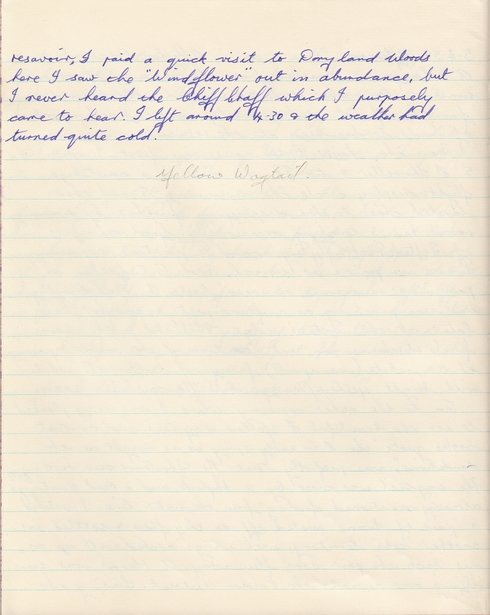 resavoir, I paid a quick visit to Donyland Woods
here I saw the "Windflower" out in abundance, but
I never heard the Chiff Chaff which I purposely
came to hear. I left around 4.30 & the weather had
turned quite cold.
Yellow Wagtail.